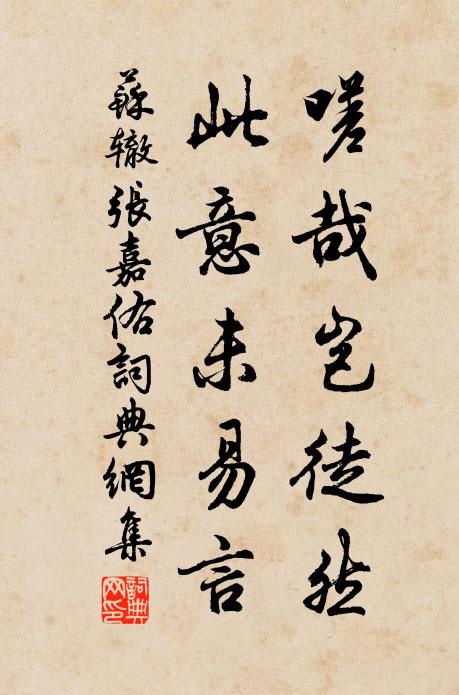 嗟哉岂徒然
此意未易言
蘇辙張嘉佑詞典網集
詞典
网印